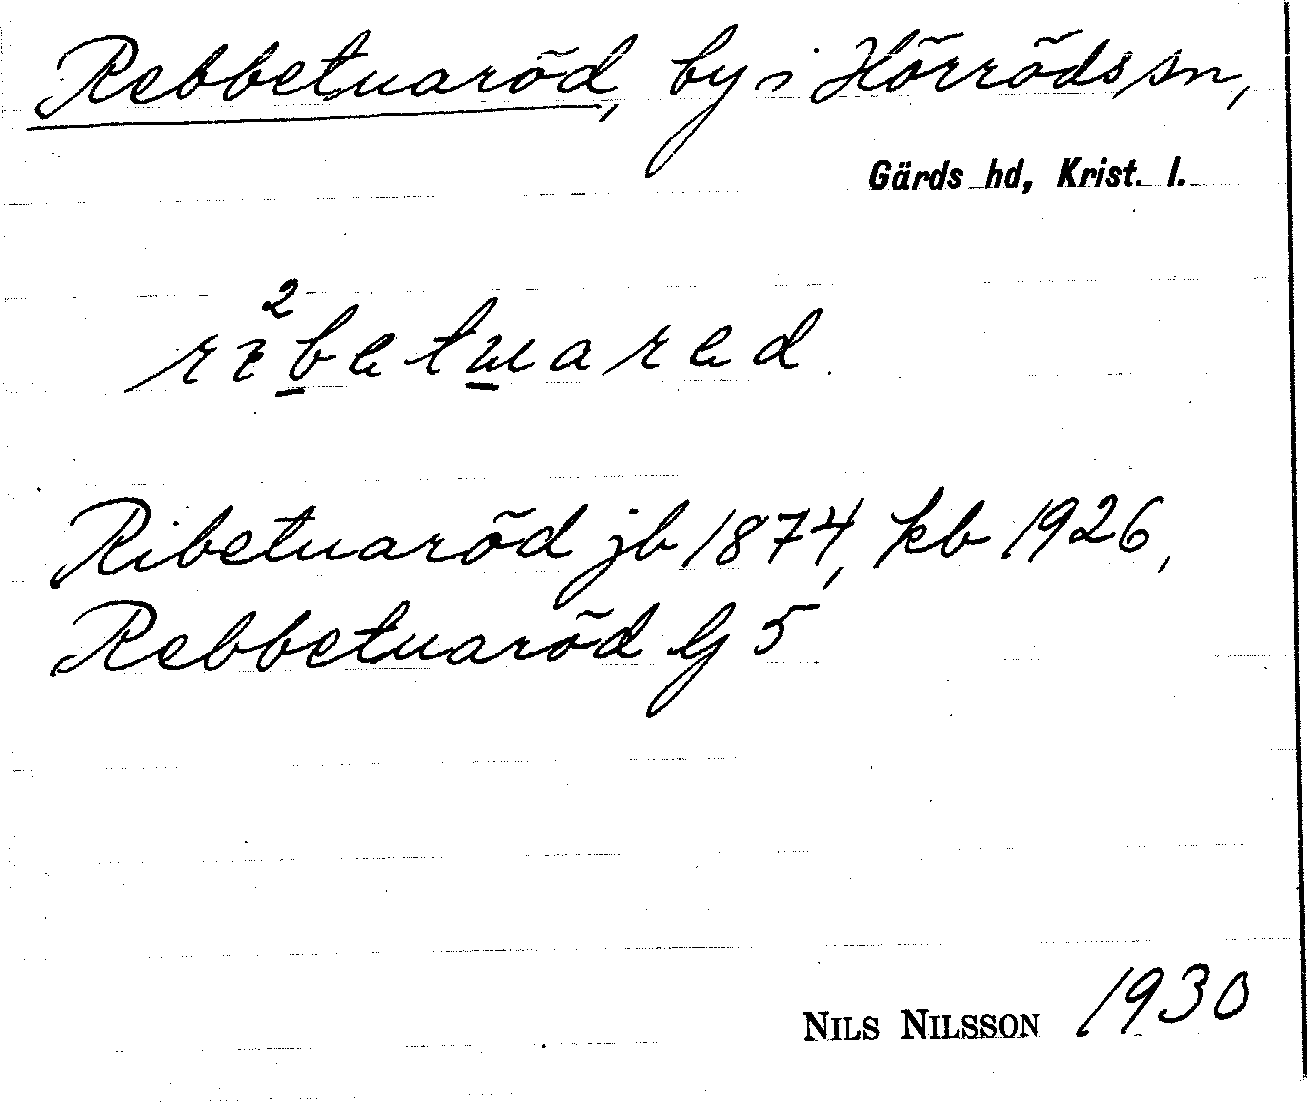 Rebbetuaröd, by i Hörröds sn,
Gärds hd, Krist. l.
Ribetuaröd jb 1874, kb 1926,
Rebbetuaröd G 5
NILS NILSSON 1930